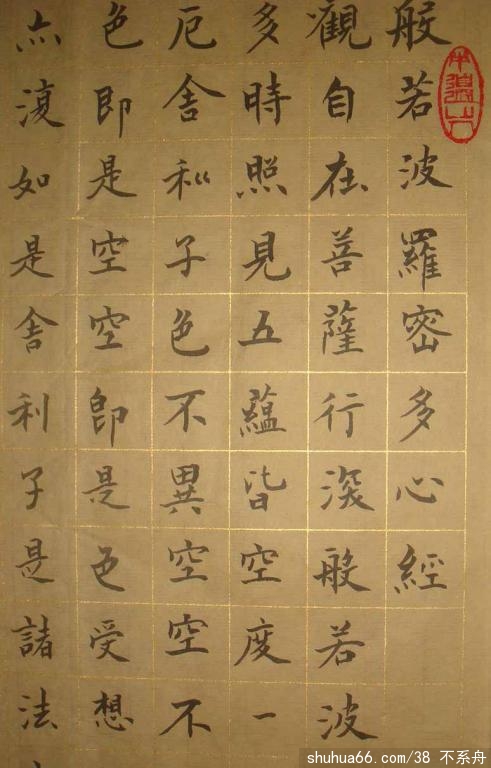 般若波羅密多心經
觀自在菩薩行深般若波
多時照見五蘊皆空度一
厄舍利子色不異空空不
色即是空空即是色受想
亦復如是舍利子是諸法
shuhua66.com/38 不系舟